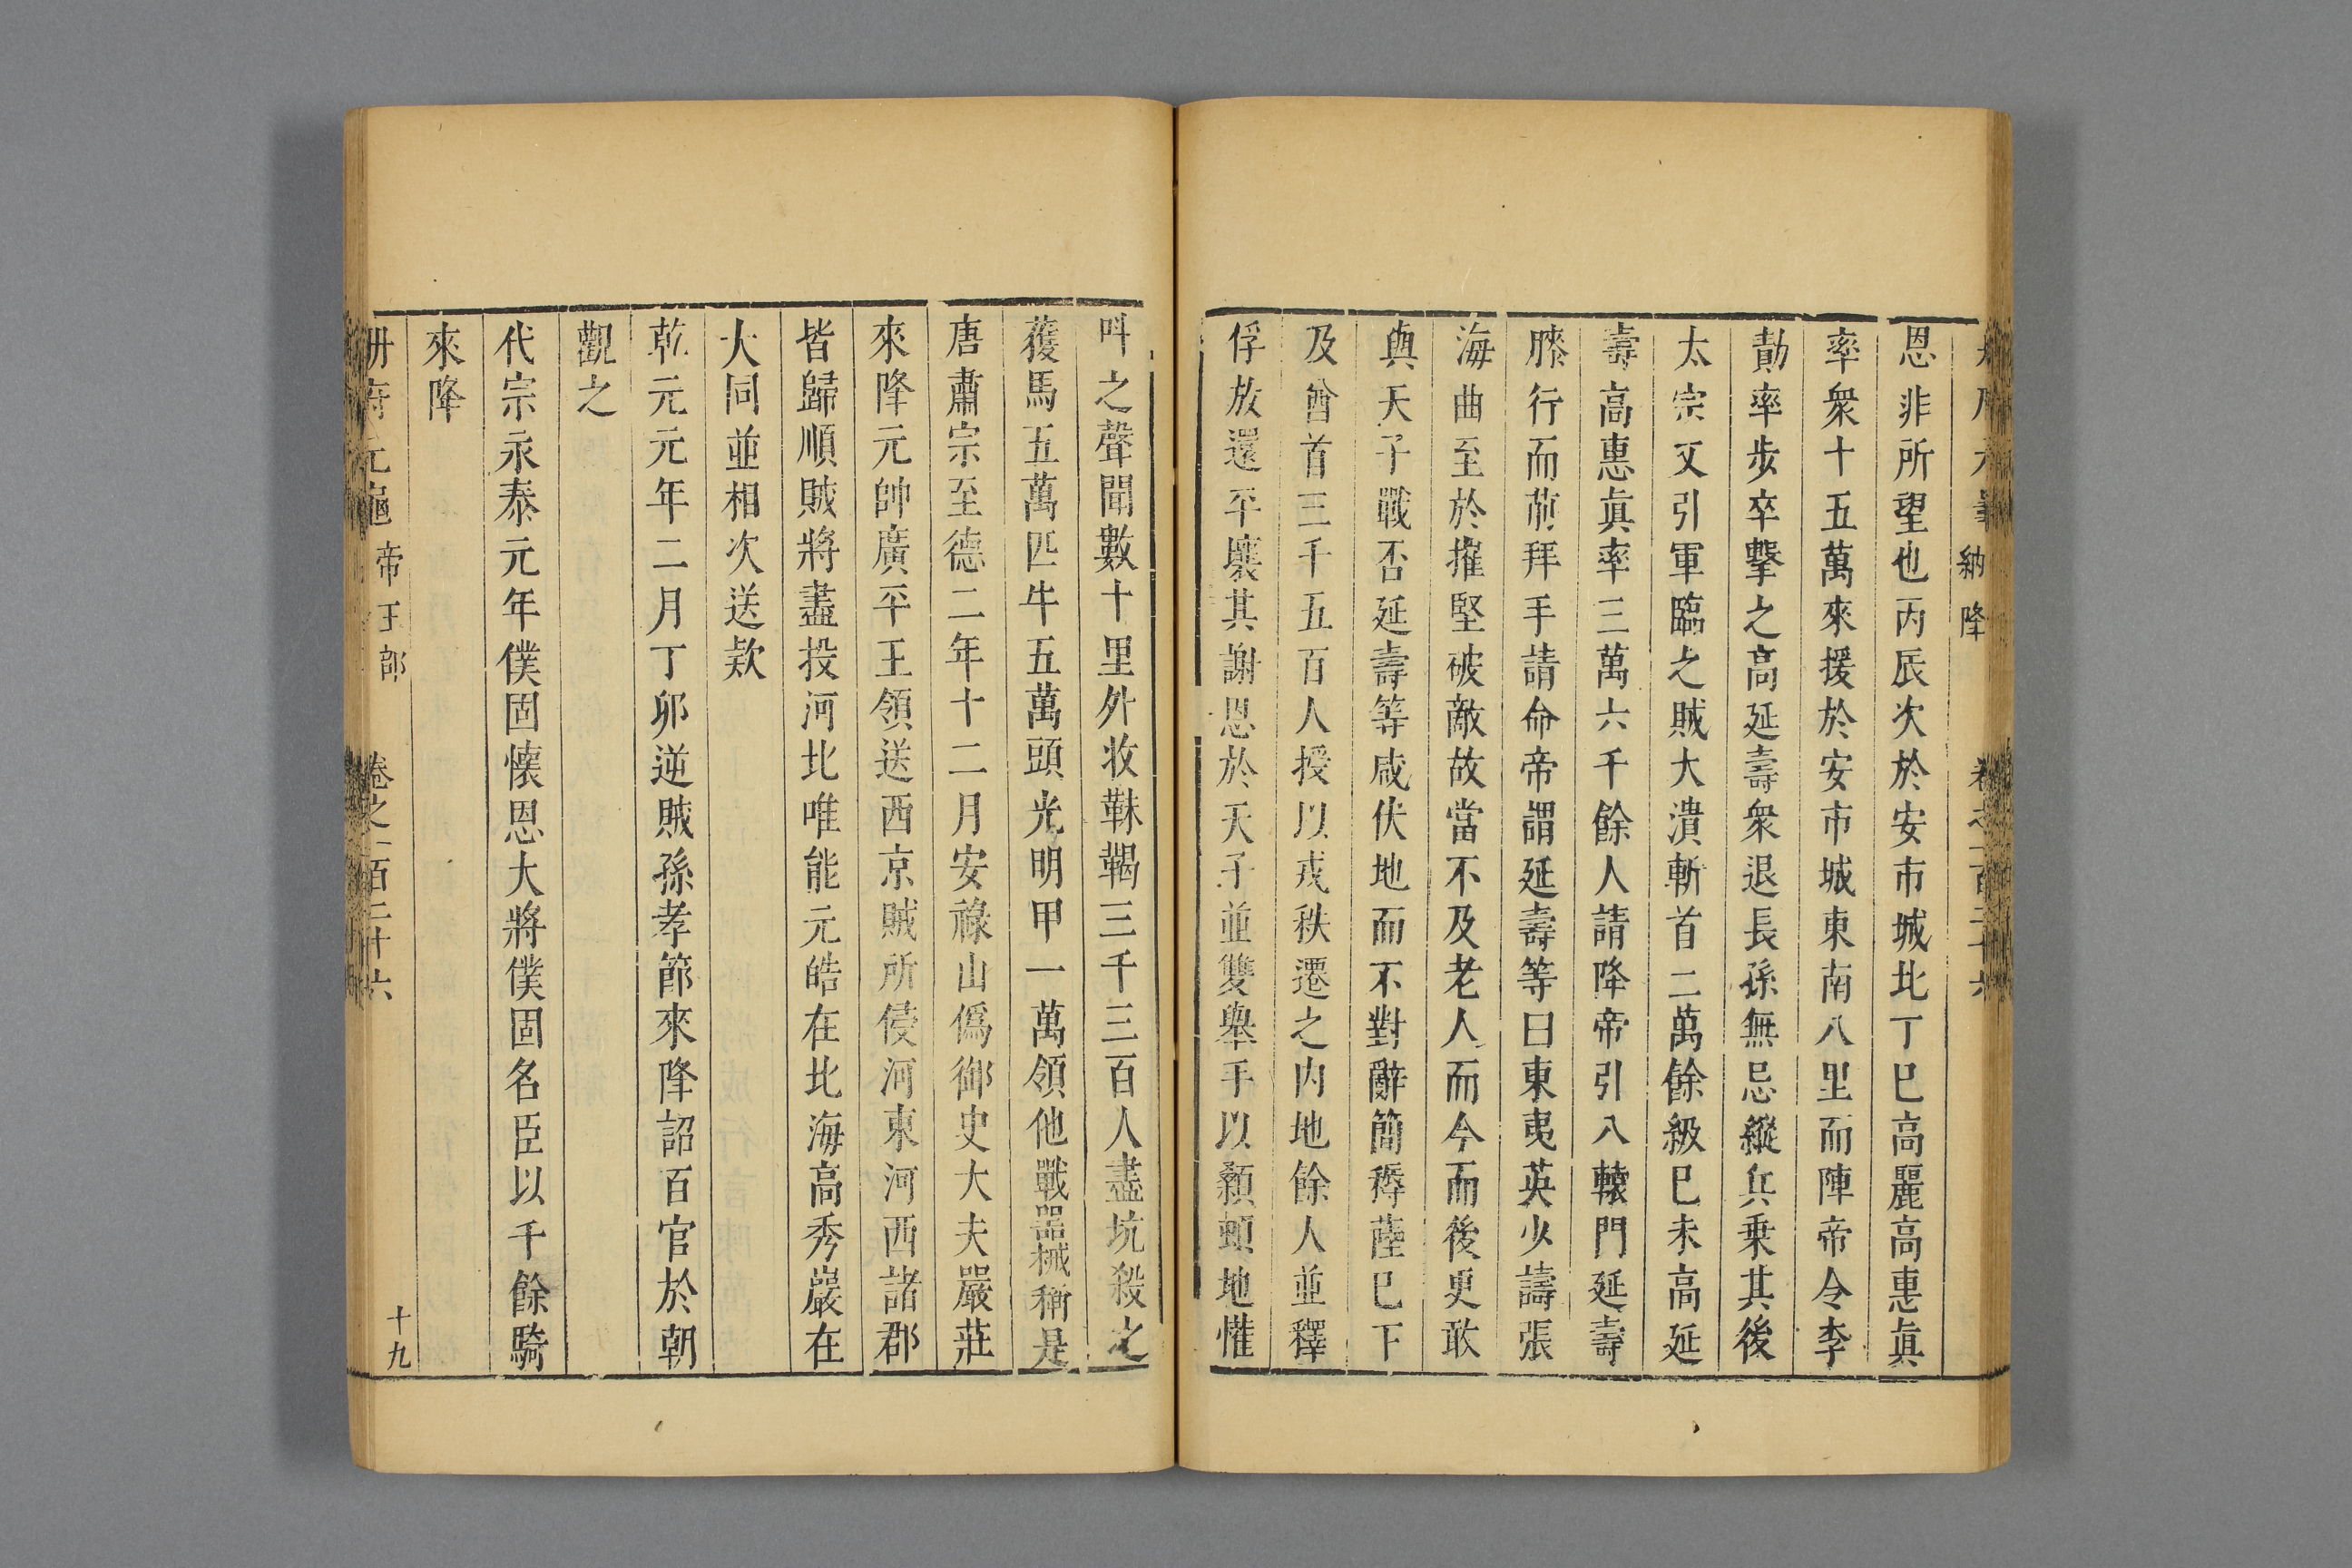 納降
恩非所望也丙辰次於安市城北丁巳高麗高惠眞
率衆十五萬來援於安市城東南八里而陣帝令李
勣率步卒擊之高延壽衆退長孫無忌縱兵乗其後
太宗又引軍臨之賊大潰斬首二萬餘級巳未高延
壽高惠眞率三萬六千餘人請降帝引入轅門延壽
膝行而前拜手請命帝謂延壽等曰東夷英少譸張
海曲至於摧堅破敵故當不及老人而今而後更敢
與天子戰否延壽等咸伏地而不對辭簡耨薩巳下
及酋首三千五百人授以戎秩遷之内地餘人並釋
俘放還平壤其謝恩於天子並雙舉手以顙頓地懽
呌之聲聞數十里外收靺鞨三千三百人盡坑殺之
獲馬五萬匹牛五萬頭光明甲一萬領他戰器械稱是
唐肅宗至德二年十二月安祿山僞御史大夫嚴莊
來降元帥廣平王領送西京賊所侵河東河西諸郡
皆歸順賊將盡投河北唯能元皓在北海高秀巖在
大同並相次送款
乾元元年二月丁卯逆賊孫孝節來降詔百官於朝
觀之
代宗永泰元年僕固懷恩大將僕固名臣以千餘騎
來降
冊府元龜 帝王部 卷之一百二十六 十九